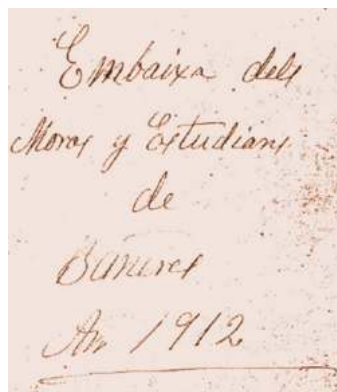 Embaixa dels
Moros y Estudians
de
Bañeres
An 1912